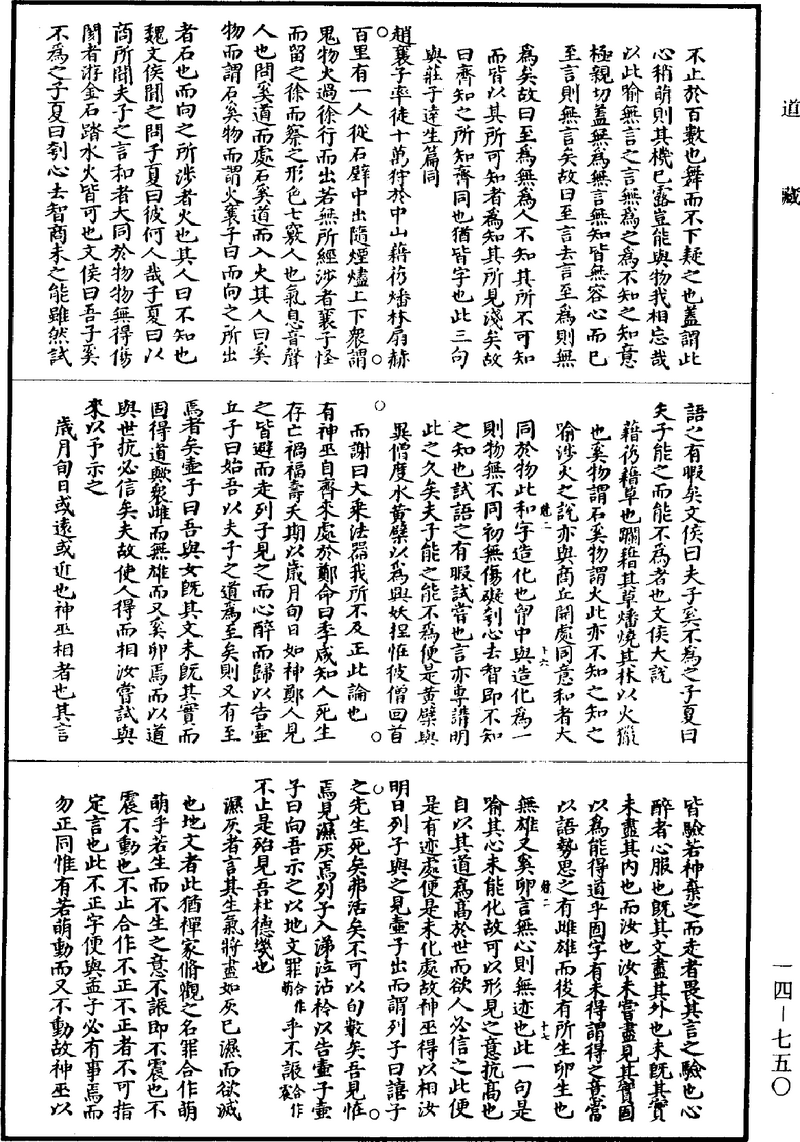 道藏
不止於百數也舞而不下疑之也蓋謂此
心稍萌則其機已露豈能與物我相忘哉
以此喻無言之言無為之為不知之知意
極親切蓋無為無言無知皆無容心而已
至言則無言矣故曰至言去言至為則無
為矣故曰至為無為人不知其所不可知
而皆以其所可知者為知其所見淺矣故
曰齊知之所知齊同也猶皆字也此三句
與莊子達生篇同
趙襄子率徒十萬狩於中山藉芿燔林扇赫
百里有一人從石壁中出隨煙燼上下眾謂
鬼物火過徐行而出若無所經涉者襄子怪
而留之徐而察之形色七竅人也氣息音聲
人也問奚道而處石奚道而入火其人曰奚
物而謂石奚物而謂火襄子曰而向之所出
者石也而向之所涉者火也其人曰不知也
魏文侯聞之問子夏曰彼何人哉子夏曰以
商所聞夫子之言和者大同於物物無得傷
閡者游金石蹈水火皆可也文侯曰吾子奚
不為之子夏曰刳心去智商未之能雖然試
語之有暇矣文侯曰夫子奚不為之子夏曰
夫子能之而能不為者也文侯大說
藉芿藉草也躝藉其草燔燒其林以火獵
也奚物謂石奚物謂火此亦不知之知之
喻涉火之說亦與商丘開處同意和者大
同於物此和字造化也胷中與造化為一
則物無不同初無傷礙刳心去智即不知
之知也試語之有暇試嘗也言亦專講明
此之久矣夫子能之能不為便是黃檗與
異僧度水黃檗以為與妖捏怪彼僧回首
而謝曰大乘法器我所不及正此論也
有神巫自齊來處於鄭命曰季咸知人死生
存亡禍福壽夭期以歲月旬日如神鄭人見
之皆避而走列子見之而心醉而歸以告壺
丘子曰始吾以夫子之道為至矣則又有至
焉者矣壺子曰吾與女既其文未既其實而
固得道歟眾雌而無雄而又奚卵焉而以道
與世抗必信矣夫故使人得而相汝嘗試與
來以予示之
歲月旬日或遠或近也神巫相者也其言
皆驗若神棄之而走者畏其言之驗也心
醉者心服也既其文盡其外也未既其實
未盡其內也而汝也汝未嘗盡見其實固
以為能得道乎固字有未得謂得之意當
以語勢思之有雌雄而後有所生卵生也
無雄又奚卵言無心則無迹也此一句是
喻其心未能化故可以形見之意抗高也
自以其道為高於世而欲人必信之此便
是有迹處便是未化處故神巫得以相汝
明日列子與之見壺子出而謂列子曰譆子
之先生死矣弗活矣不可以旬數矣吾見怪
焉見濕灰焉列子入涕泣沾衿以告壺子壺
子曰向吾示之以地文罪合作萌乎不誫合作震
不止是殆見吾杜德幾也
濕灰者言其生氣將盡如灰已濕而欲滅
也地文者此猶禪家脩觀之名罪合作萌
萌乎若生而不生之意不誫即不震也不
震不動也不止合作不正不正者不可指
定言也此不正字便與孟子必有事焉而
勿正同惟有若萌動而又不動故神巫以
卷二
十六
卷二
十七
一四-七五〇